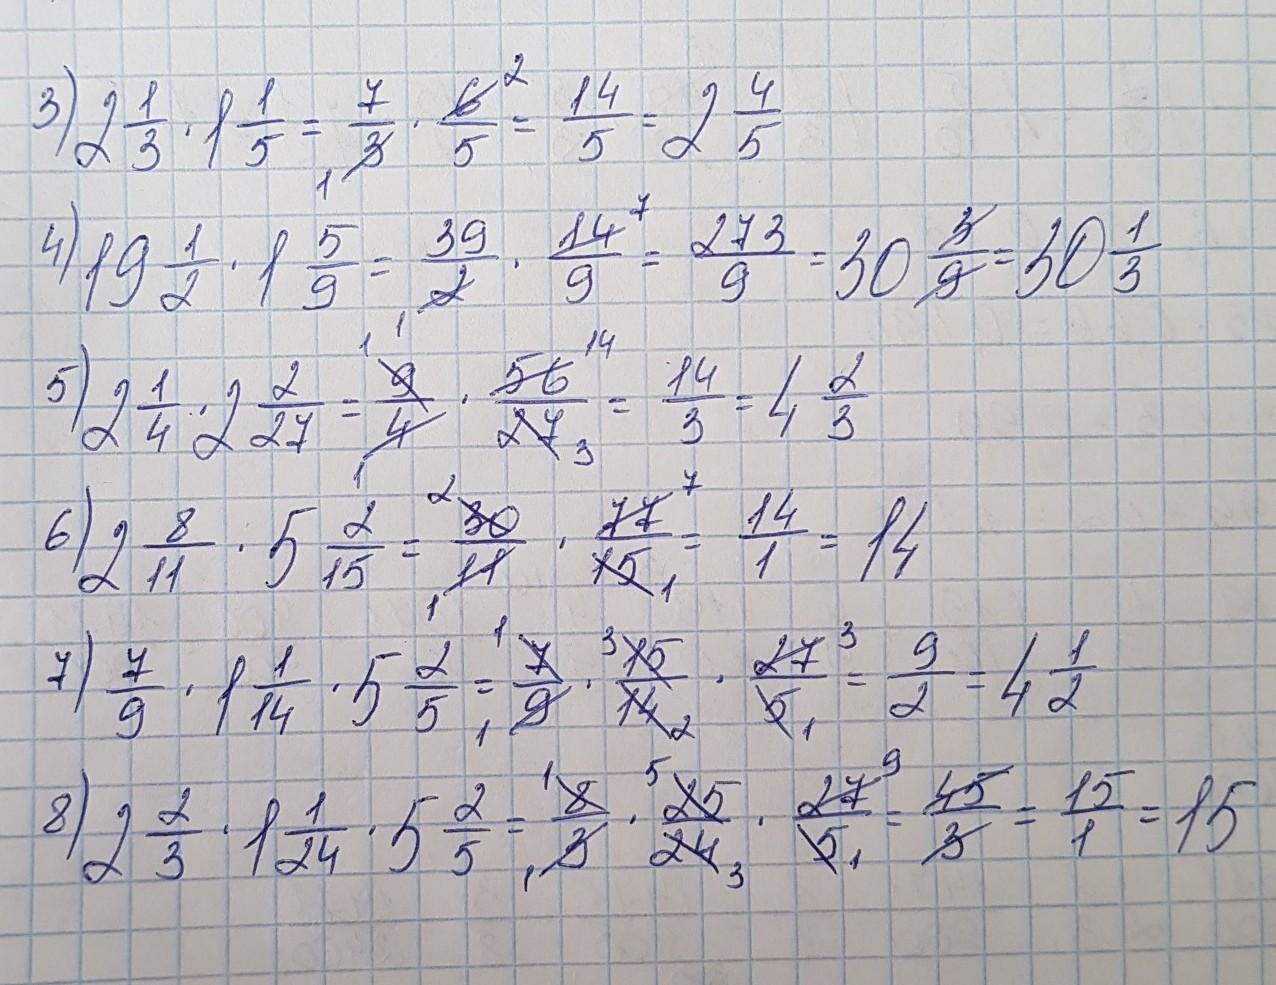 3) 2 1/3 · 1 1/5 = 7/3 1 · 6/5 2 = 14/5 = 2 4/5
4) 19 1/2 · 1 5/9 = 39/2 1 · 14/9 7 = 273/9 = 30 3/9 = 30 1/3
5) 2 1/4 · 2 2/27 = 1 9/4 1 · 56/27 14 3 = 14/3 = 4 2/3
6) 2 8/11 · 5 2/15 = 2 30/11 1 · 77/15 7 1 = 14/1 = 14
7) 7/9 · 1 1/14 · 5 2/5 = 1 7/9 1 · 3 15/14 2 · 27/5 3 1 = 9/2 = 4 1/2
8) 2 2/3 · 1 1/24 · 5 2/5 = 1 8/3 1 · 5 25/24 3 · 27/5 9 1 = 45/3 = 15/1 = 15